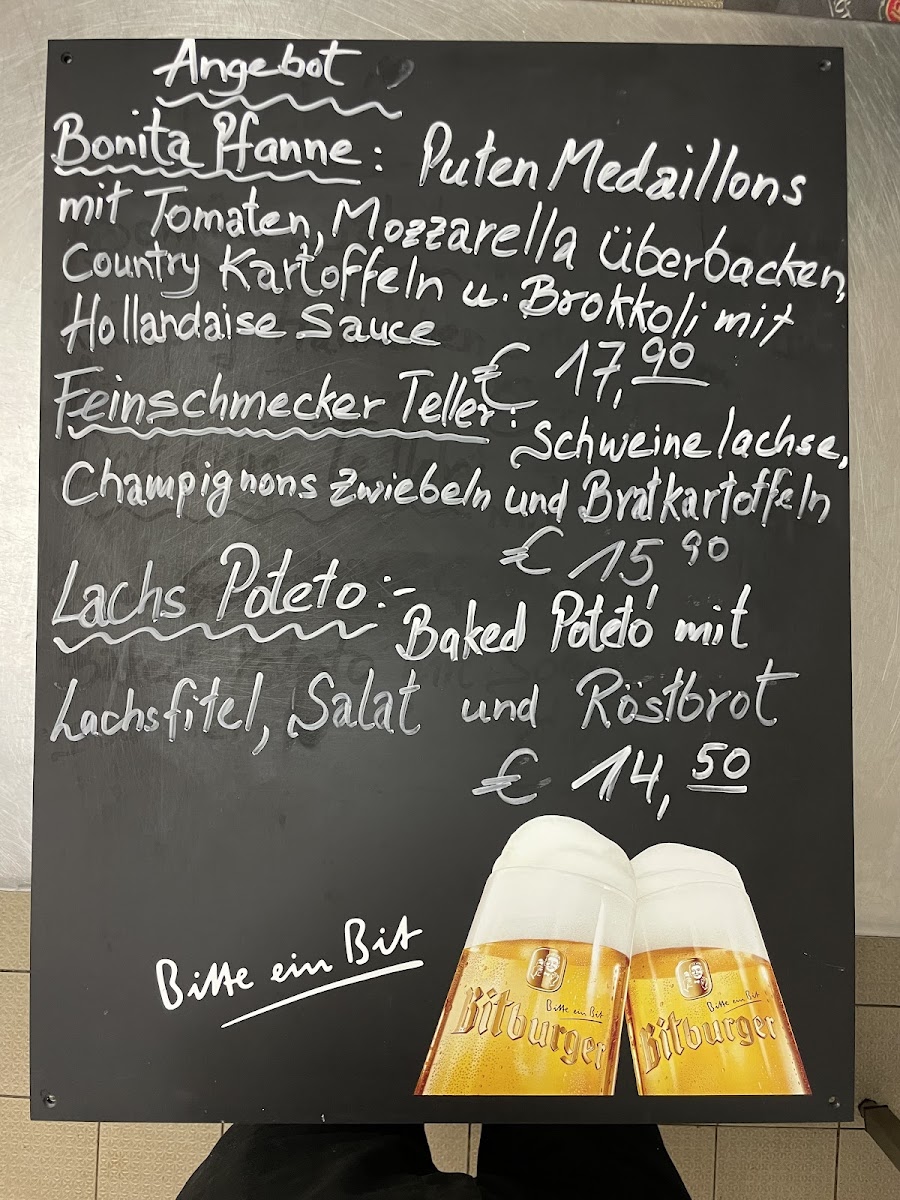 Angebot
Bonita Pfanne: Puten Medaillons
mit Tomaten, Mozzarella überbacken,
Country Kartoffeln u. Brokkoli mit
Hollandaise Sauce
€ 17,90
Feinschmecker Teller:
Schweinelachse,
Champignons Zwiebeln und Bratkartoffeln
€ 15,90
Lachs Poteto:-
Baked Poteto mit
Lachsfitel, Salat und Röstbrot
€ 14,50
Bitte ein Bit
Bitte ein Bit
Bitburger
Bitte ein Bit
Bitburger